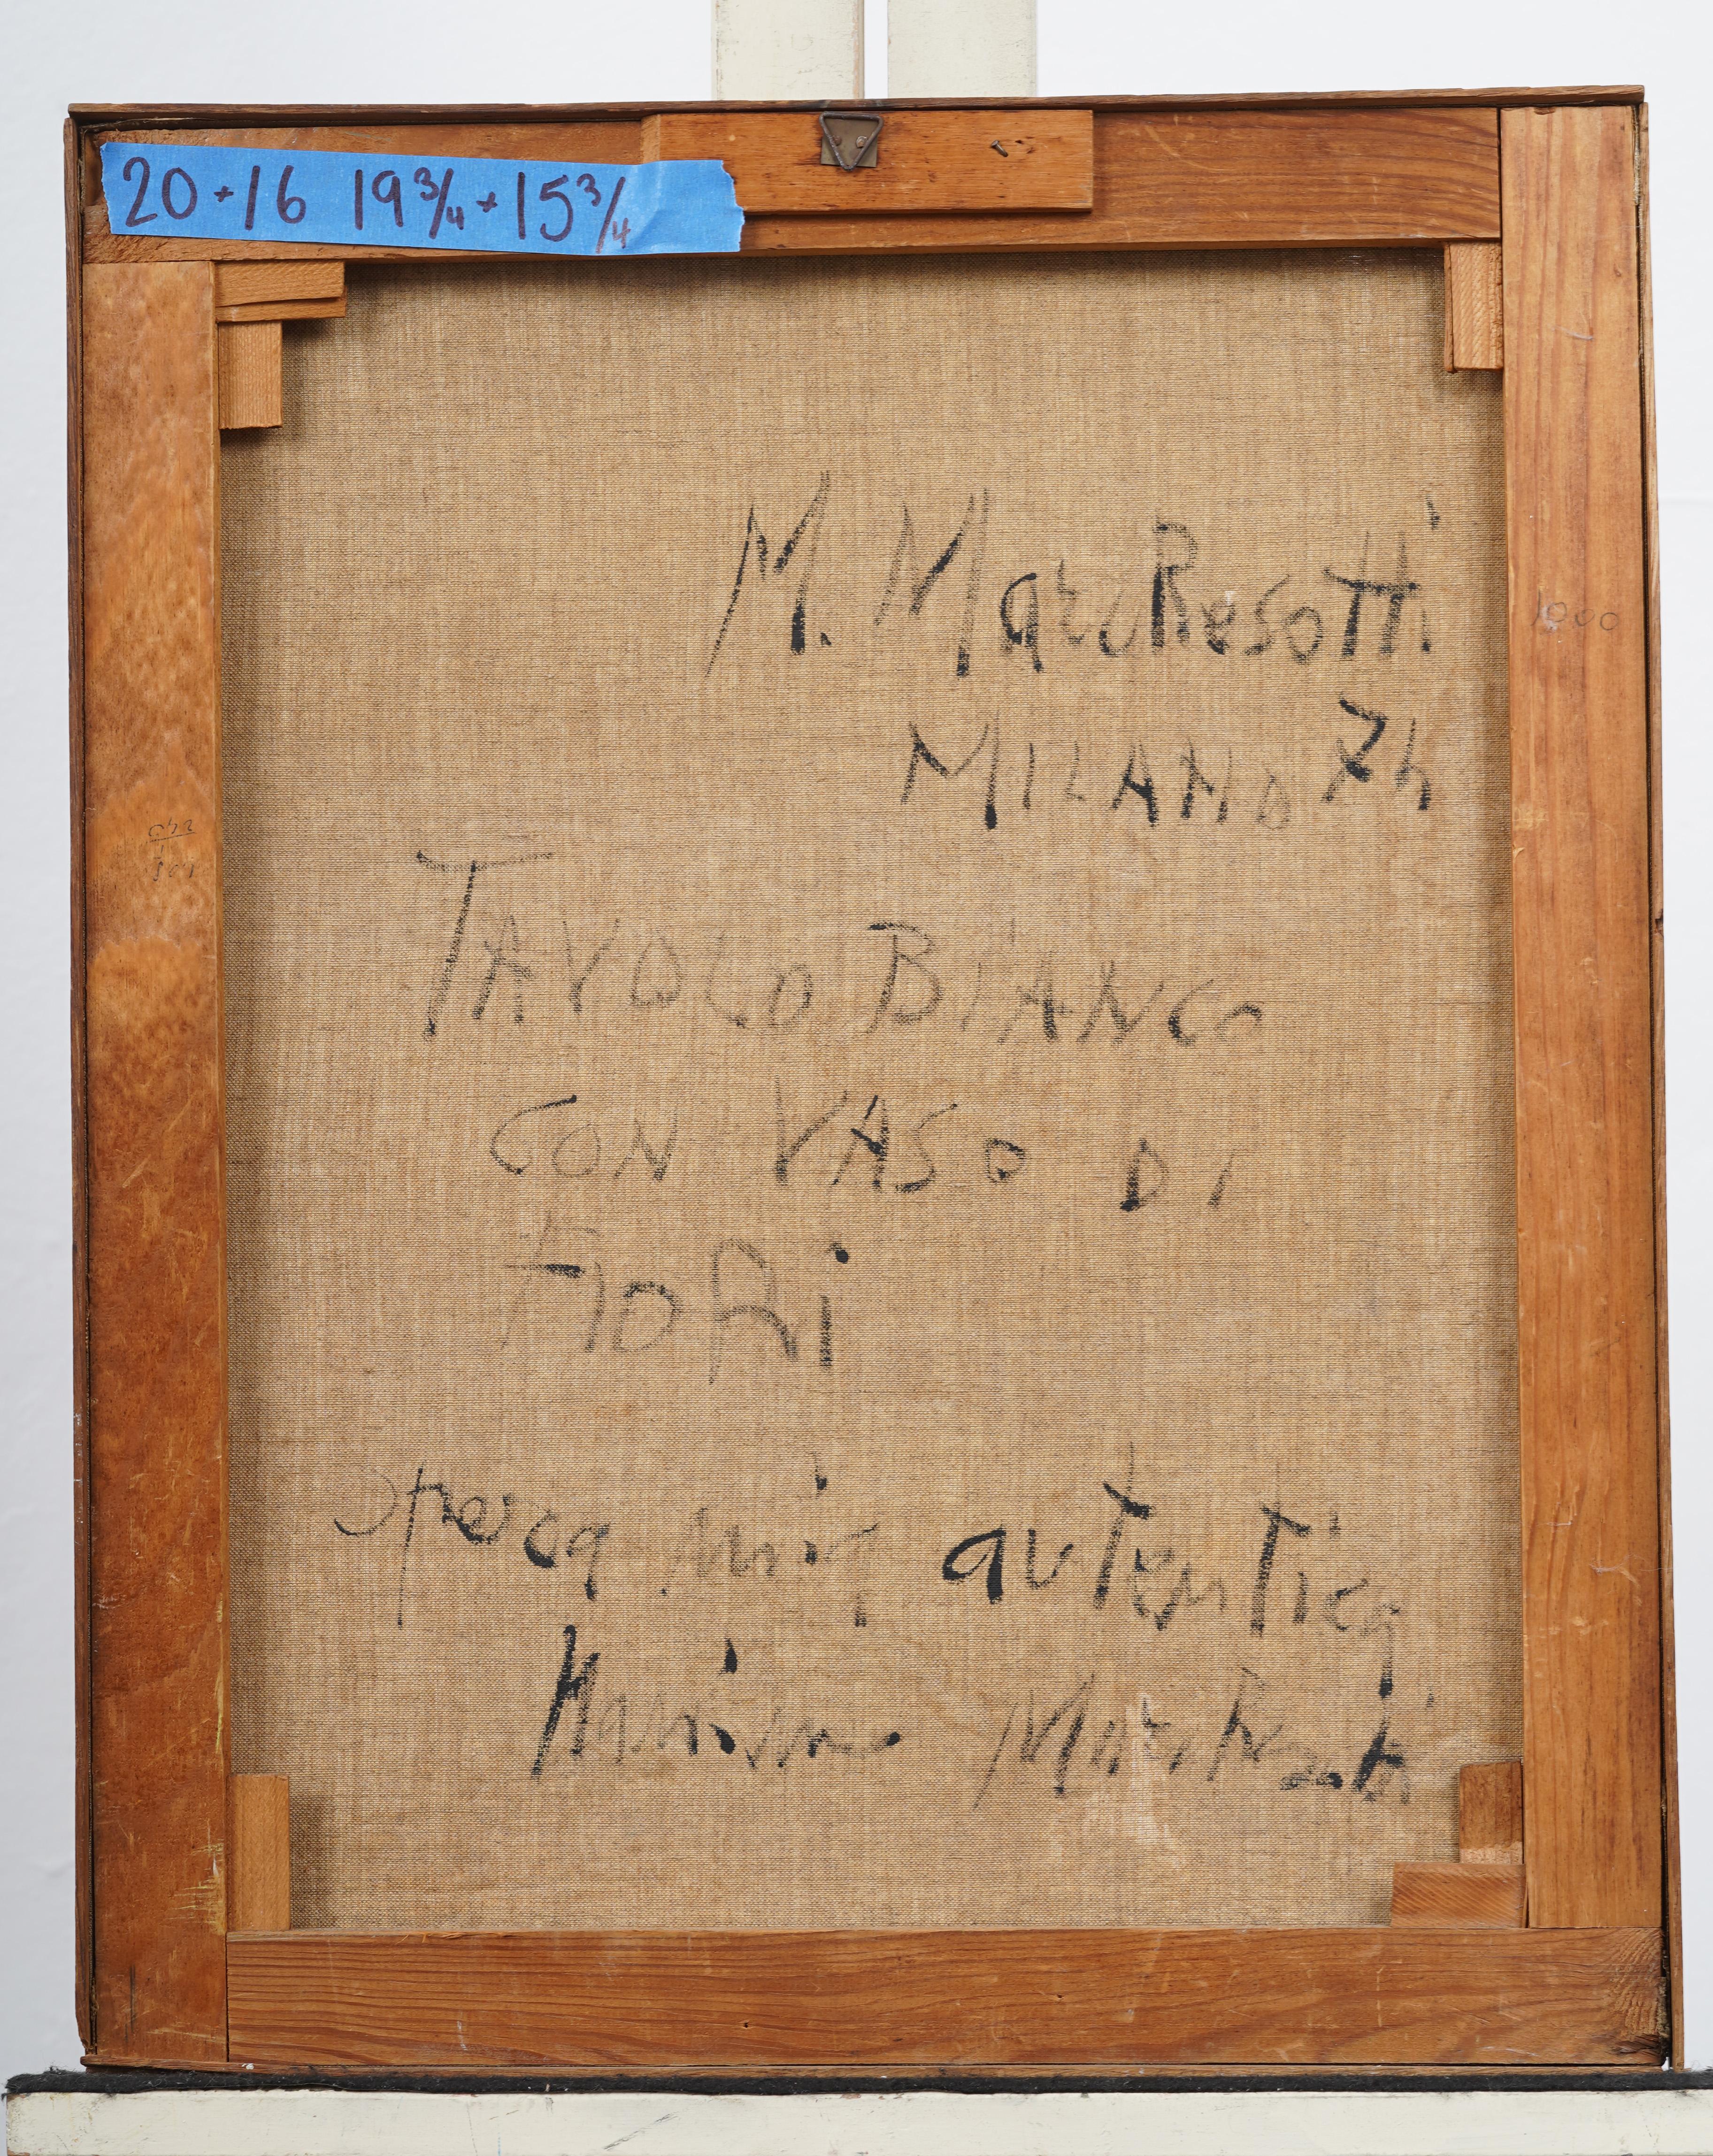 20 × 16 19 3/4 × 15 3/4
M. MarcResotti
1000
MILANO 74
TAVOLO BIANCO
CON VASO DI
FIORi
opera mia autentica
Massimo